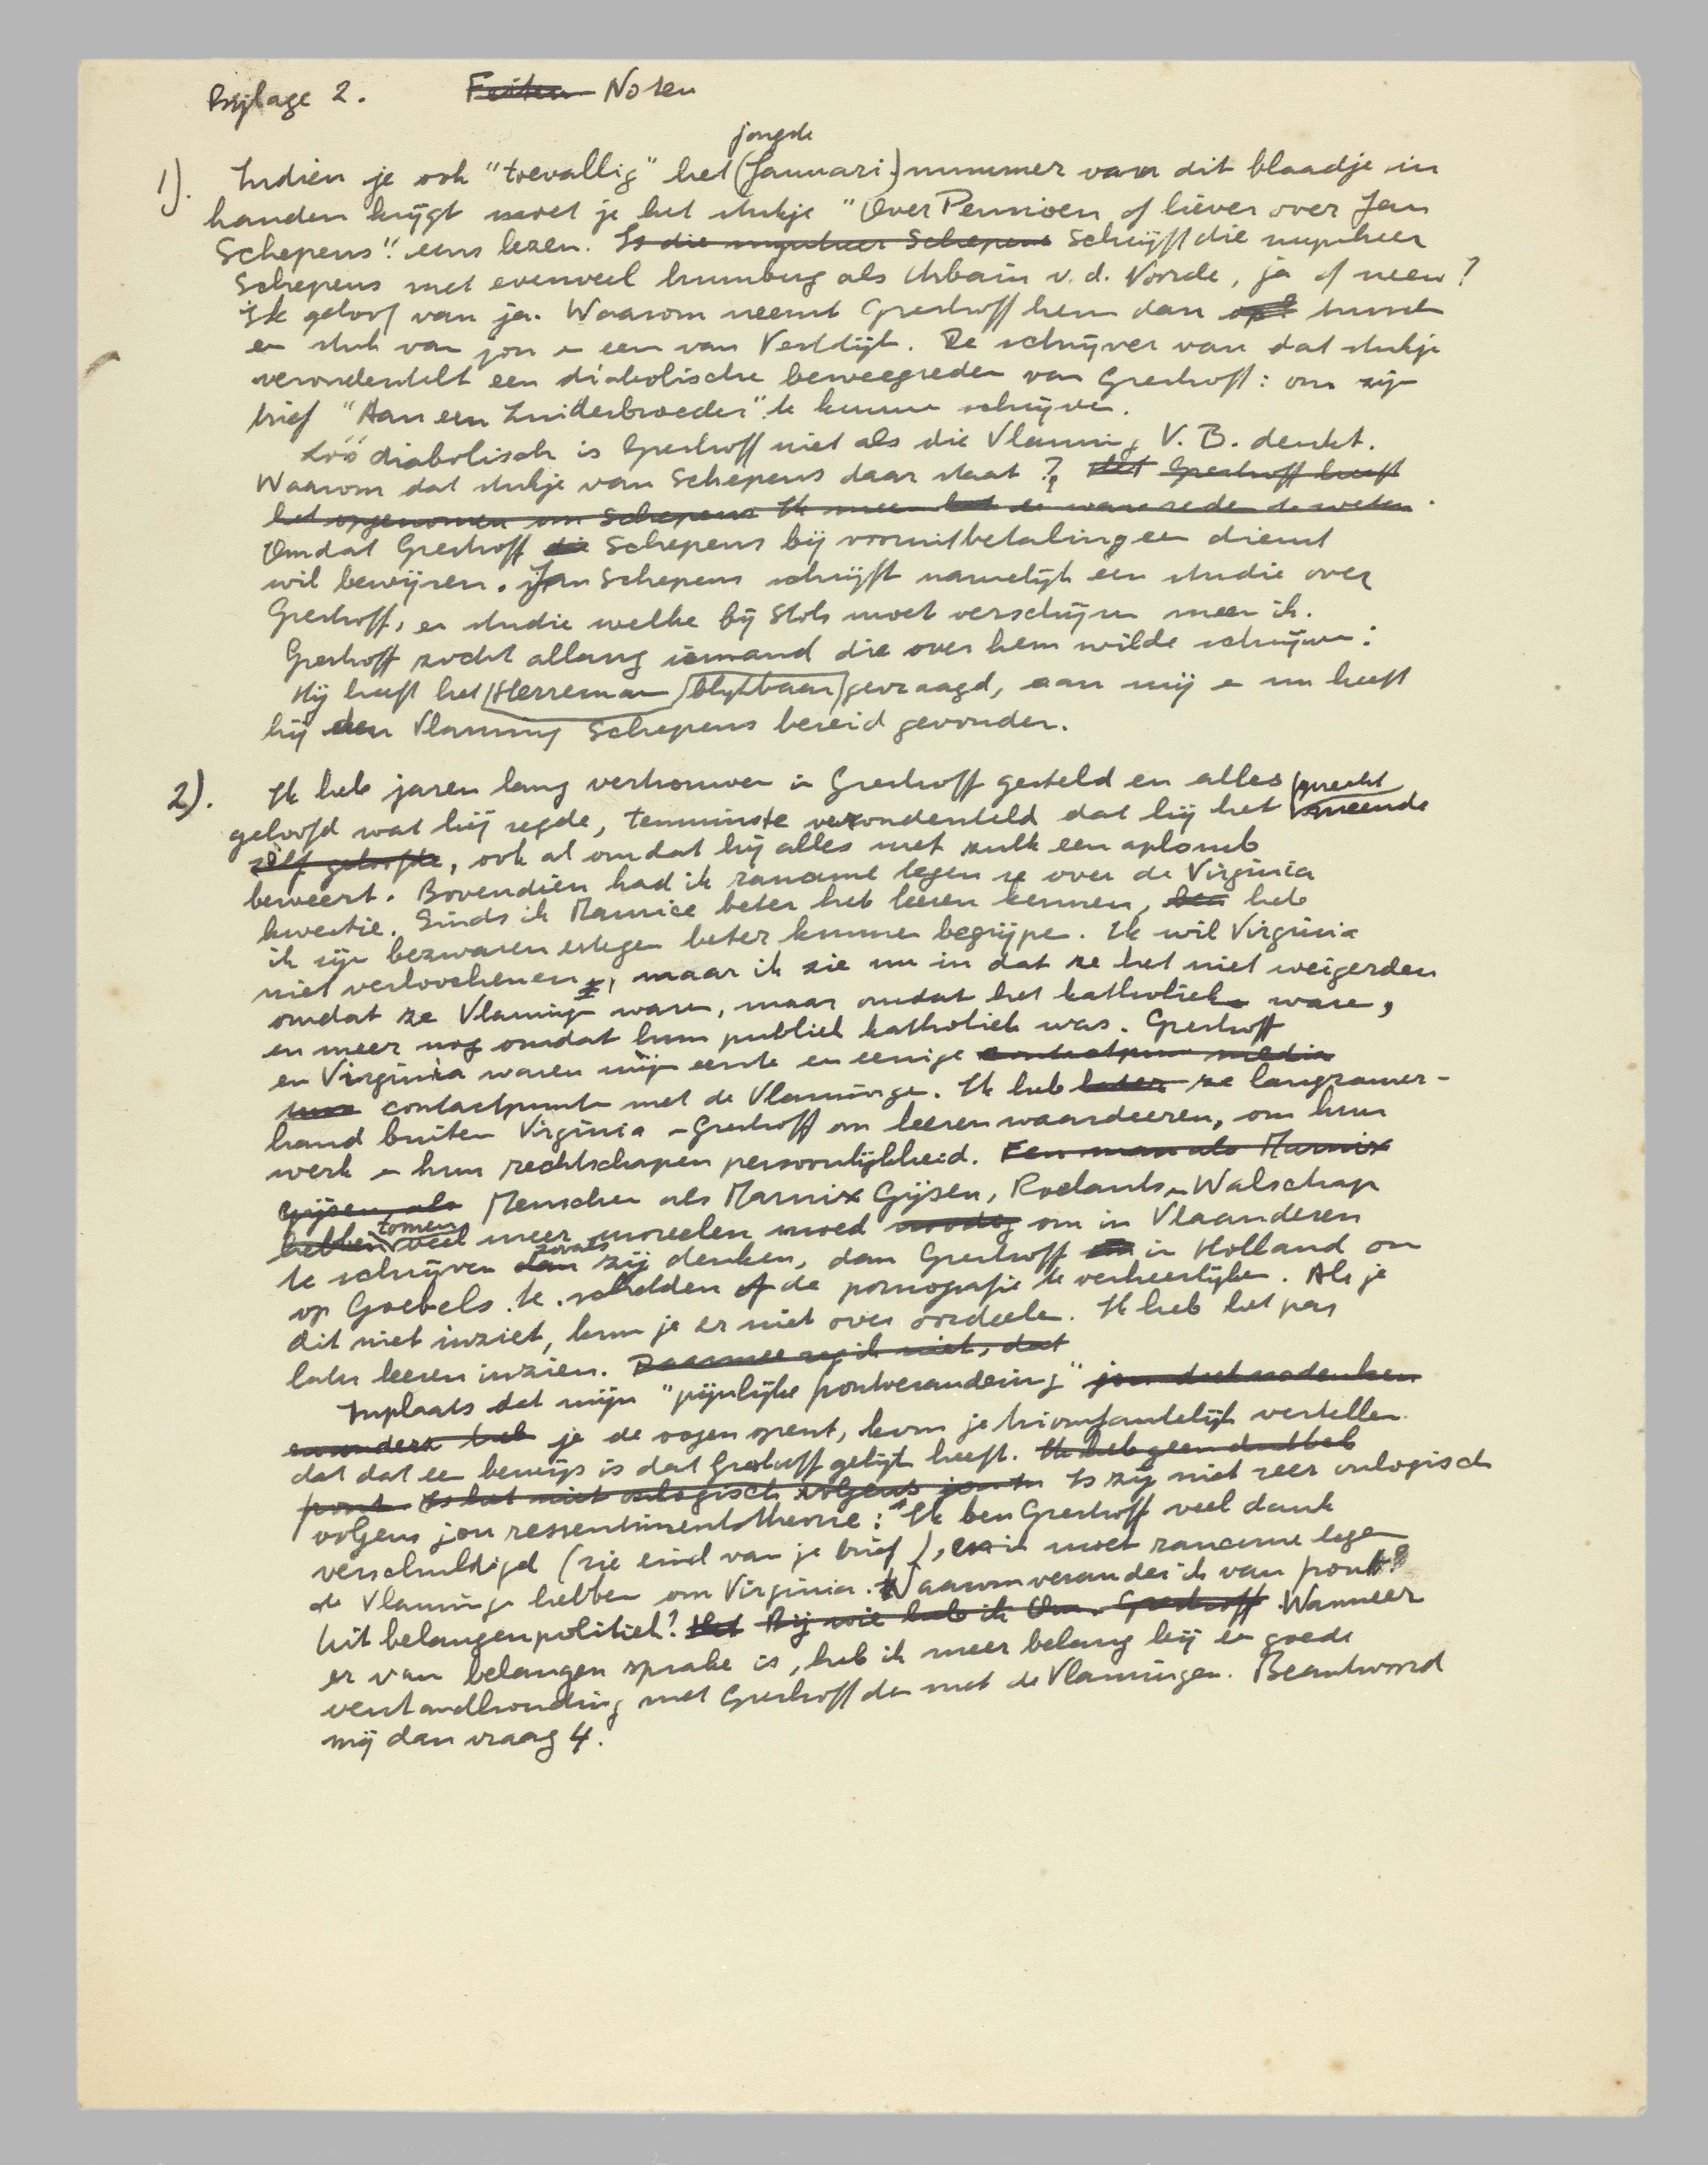 Bijlage 2. Feiten Noten
jongste
1). Indien je ook "toevallig" het (Januari) nummer van dit blaadje in
handen krijgt moet je het stukje "Over Permoen of liever over Jan
Schepens" eens lezen. Is die mynheer Schepens Schrijft die mynheer
Schepens met evenveel humbug als Urbain v.d. Voorde, ja of neen?
Ik geloof van ja. Waarom neemt Greshoff hem dan op? tussen
een stuk van jou en een van Vestdijk. De schrijver van dat stukje
veronderstelt een diabolische beweegreden van Greshoff: om zijn
brief "Aan een Zuiderbroeder" te kunnen schrijven.
Zóó diabolisch is Greshoff niet als die Vlaming V. B. denkt.
Waarom dat stukje van Schepens daar staat? Het Greshoff heeft
het opgenomen om Schepens Ik meen de ware reden te weten.
Omdat Greshoff die Schepens bij vooruitbetaling een dienst
wil bewijzen. Jan Schepens schrijft namelijk een studie over
Greshoff, een studie welke bij Stols moet verschijnen meen ik.
Greshoff zocht allang iemand die over hem wilde schrijven:
Hij heeft het Herreman blijkbaar gevraagd, aan mij en nu heeft
hij den Vlaming Schepens bereid gevonden.
2). Ik heb jaren lang vertrouwen in Greshoff gesteld en alles oprecht
geloofd wat hij zegde, tenminste verondersteld dat hij het meende
zelf geloofde, ook al omdat hij alles met zulk een aplomb
beweert. Bovendien had ik rancune tegen ze over de Virginia
kwestie. Sinds ik Maurice beter heb leeren kennen, heb
ik zijn bezwaren ertegen beter kunnen begrijpen. Ik wil Virginia
niet verloochenen, maar ik zie nu in dat ze het niet weigerden
omdat ze Vlaming waren, maar omdat het katholiek waren,
en meer nog omdat hun publiek katholiek was. Greshoff
en Virginia waren mijn eerste en eenige contactpun media
contactpunten met de Vlamingen. Ik heb later ze langzamer-
hand buiten Virginia - Greshoff om leeren waardeeren, om hun
werk en hun rechtschapen persoonlijkheid. Een man als Marnix
Gijsen, als Menschen als Marnix Gijsen, Roelants en Walschap
hebben toonen veel meer moreelen moed noodig om in Vlaanderen
te schrijven dan zooals zij denken, dan Greshoff in Holland om
op Goebels te schelden of de pornografie te verheerlijken. Als je
dit niet inziet, kun je er niet over oordeelen. Ik heb het pas
later leeren inzien. Daarmee zeg ik niet, dat
Inplaats dat mijn "pijnlijke frontverandering" jou doet nadenken
je de oogen opent, kom je triomfantelijk vertellen
dat dat een bewijs is dat Greshoff gelijk heeft. Ik heb geen dubbel
front. Is het niet onlogisch volgens jou Is zij niet zeer onlogisch
volgens jou ressentimentstheorie: "Ik ben Greshoff veel dank
verschuldigd (zie eind van je brief), en ik moet rancune tegen
de Vlamingen hebben om Virginia. Waarom verander ik van front?
Uit belangenpolitiek? Het Bij wie heb ik Om Greshoff Wanneer
er van belangen sprake is, heb ik meer belang bij een goede
verstandhouding met Greshoff dan met de Vlamingen. Beantwoord
mij dan vraag 4.